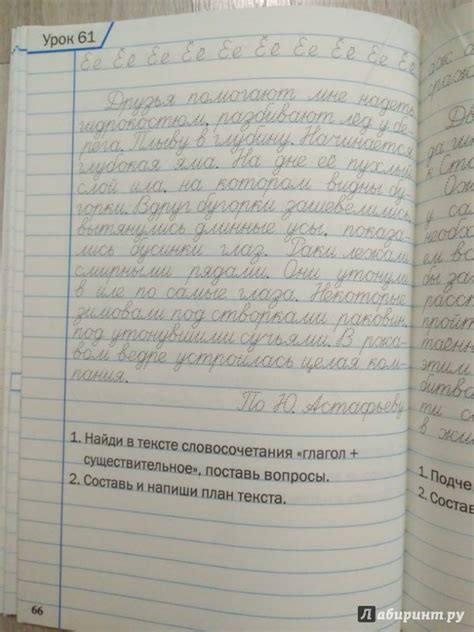 Урок 61
Ее Ёё Ее Ёё Ее Ёё Ее Ее Ее Ёё
Друзья помогают мне надеть
гидрокостюм, разбивают лёд у бе-
рега. Плыву в глубину. Начинается
глубокая яма. На дне её пухлый
слой ила, на котором видны бу-
горки. Вдруг бугорки зашевелились,
вытянулись длинные усы, показа-
лись бусинки глаз. Раки лежали
смирными рядами. Они утонули
в иле по самые глаза. Некоторые
зимовали под створками раковин,
под утонувшими сучьями. В рако-
вом ведре устроилась целая ком-
пания.
По Ю. Астафьеву
1. Найди в тексте словосочетания «глагол +
существительное», поставь вопросы.
2. Составь и напиши план текста.
66
да ги
к Ст
у са
необх
ем во
бы за
рассо
пройт
таён
этим
битво
ти с
в жи
1. Подче
2. Соста
Лабиринт.ру